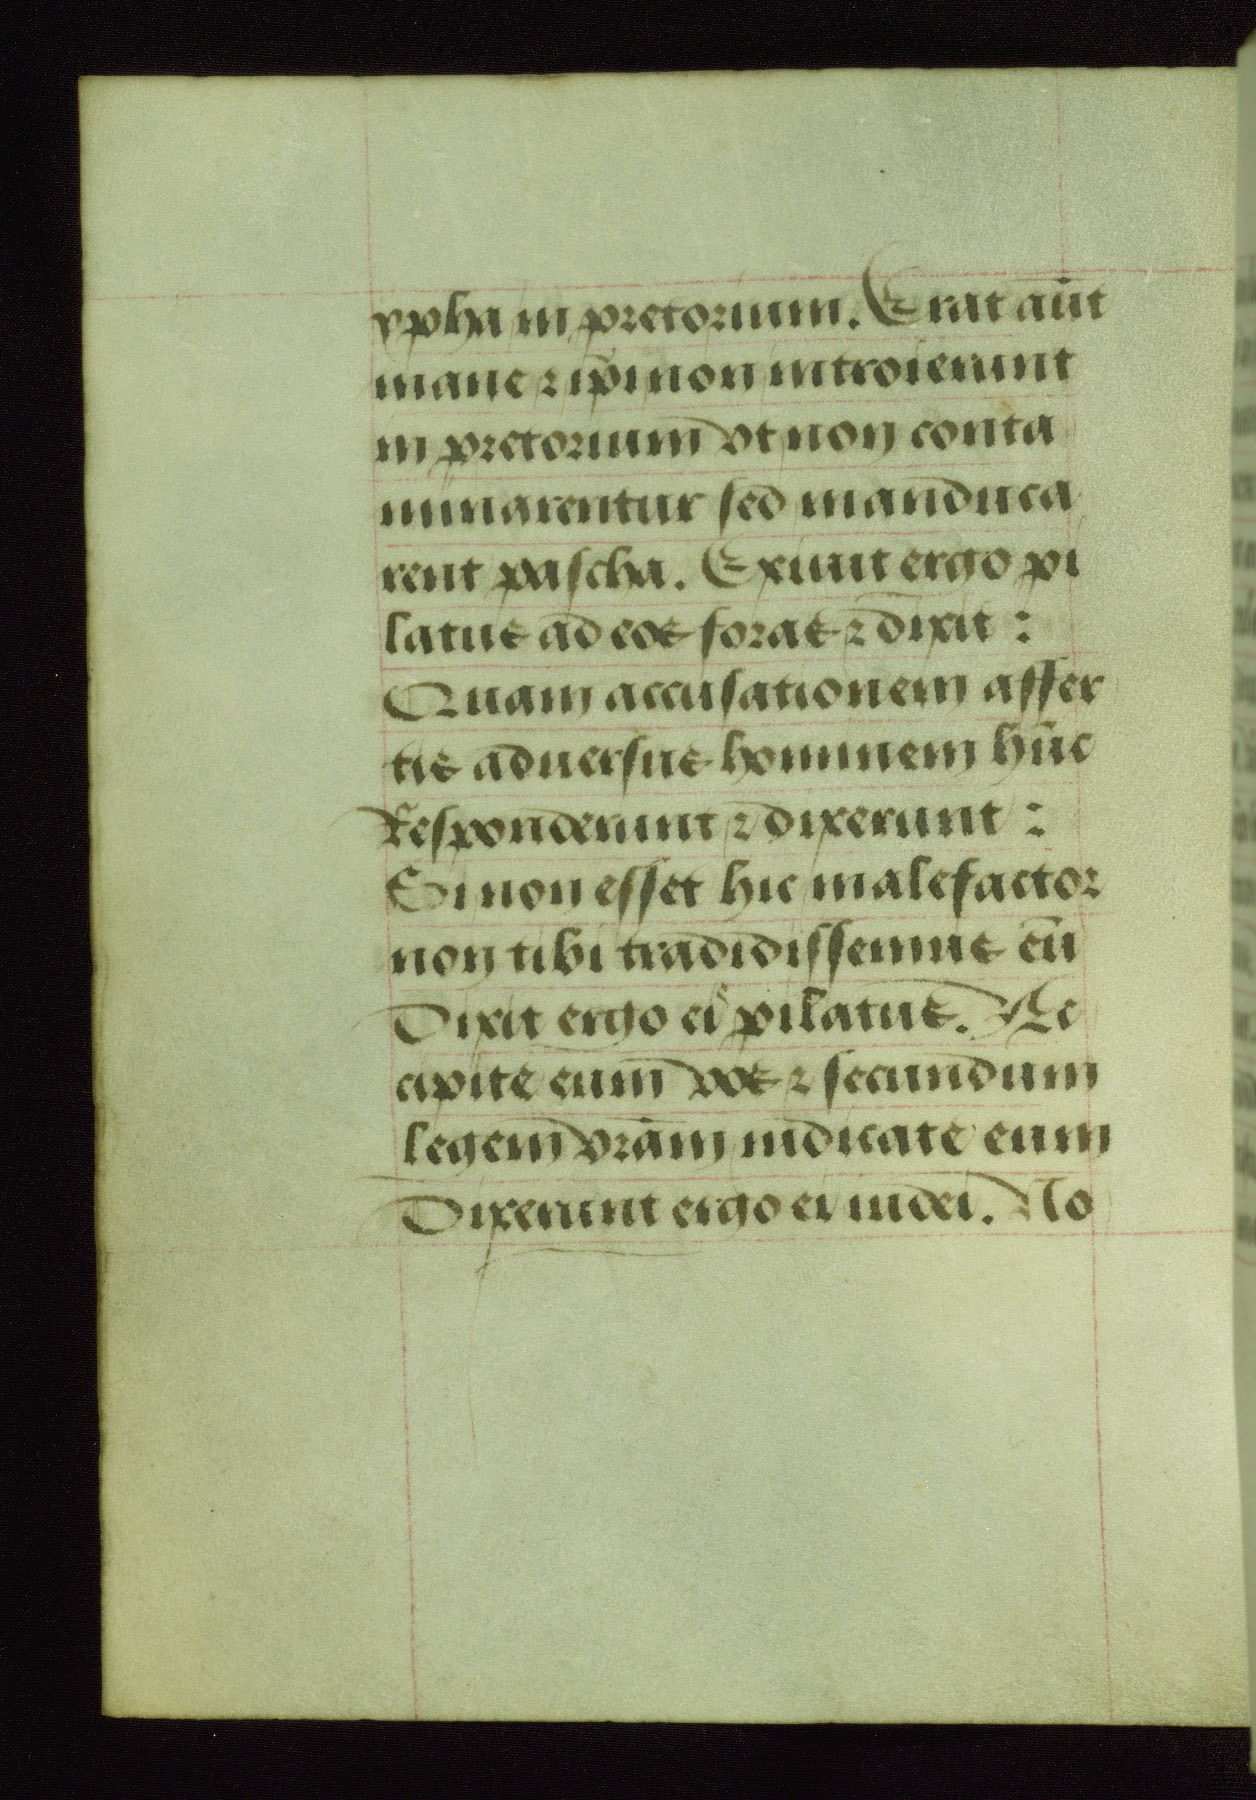 ypha in pretorium. Erat aūt
mane ⁊ ip̄i non introierunt
in pretorium vt non conta
minarentur sed manduca
rent pascha. Exiuit ergo pi
latus ad eos foras ⁊ dixit :
Quam accusationem affer
tis aduersus hominem hūc
Responderunt ⁊ dixerunt :
Si non esset hic malefactor
non tibi tradidissemus eū
Dixit ergo ei pilatus. Ac
cipite eum vos ⁊ secundum
legem vrām iudicate eum
Dixerunt ergo ei iudei. No